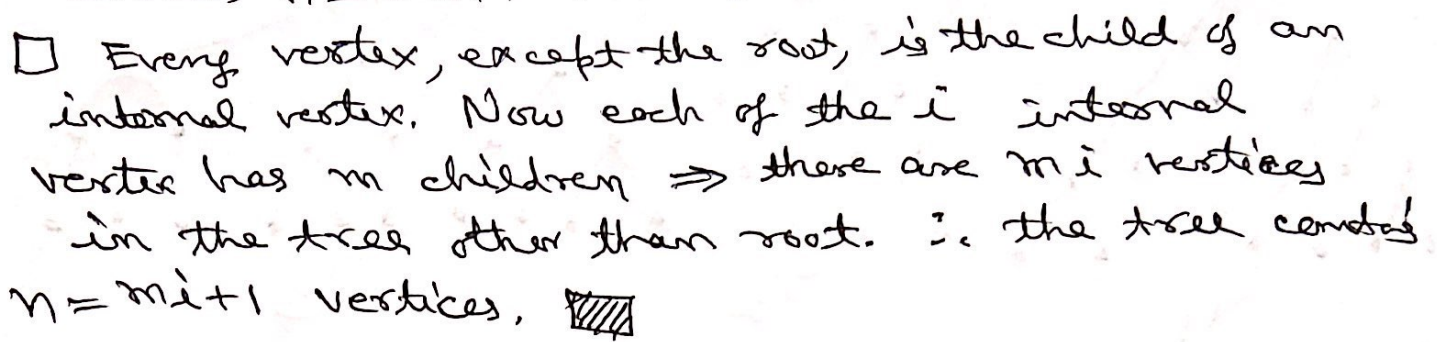 □ Every vertex, except the root, is the child of an
internal vertex. Now each of the i internal
vertex has m children ⇒ there are mi vertices
in the tree other than root. ∴ the tree contains
n = mi+1 vertices.